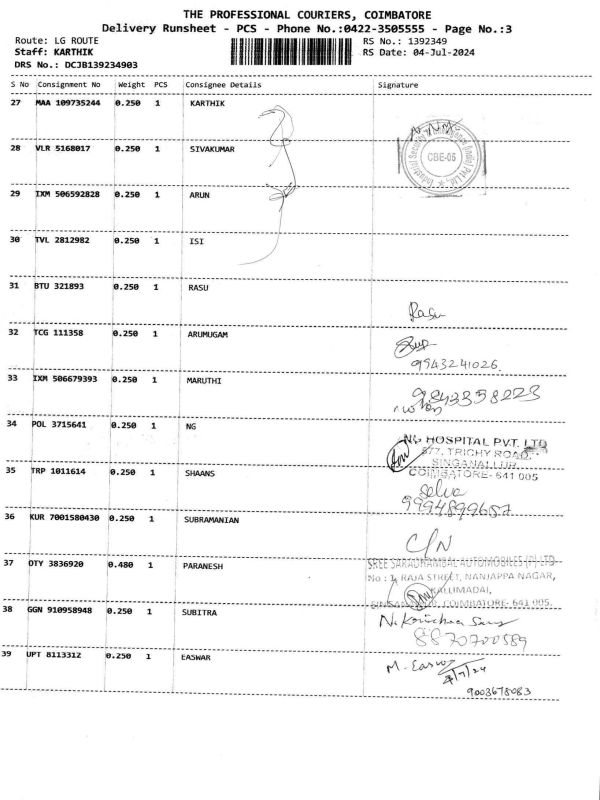 THE PROFESSIONAL COURIERS, COIMBATORE
Delivery Runsheet - PCS - Phone No.:0422-3505555 - Page No.:3
Route: LG ROUTE RS No.: 1392349
Staff: KARTHIK RS Date: 04-Jul-2024
DRS No.: DCJB139234903
S No Consignment No Weight PCS Consignee Details Signature
27 MAA 109735244 0.250 1 KARTHIK
28 VLR 5168017 0.250 1 SIVAKUMAR
CBE-05
29 IXM 506592828 0.250 1 ARUN
30 TVL 2812982 0.250 1 ISI
31 BTU 321893 0.250 1 RASU
Rasu
32 TCG 111358 0.250 1 ARUMUGAM
9943241026
33 IXM 506679393 0.250 1 MARUTHI
9843358223
34 POL 3715641 0.250 1 NG
NG HOSPITAL PVT. LTD
577, TRICHY ROAD,
SINGANALLUR,
COIMBATORE- 641 005
35 TRP 1011614 0.250 1 SHAANS
Selva
9994899687
36 KUR 7001580430 0.250 1 SUBRAMANIAN
C/N
37 OTY 3836920 0.480 1 PARANESH
SREE SARADHAMBAL AUTOMOBILES (P) LTD
No : 1, RAJA STREET, NANJAPPA NAGAR,
KALLIMADAI,
COIMBATORE- 641 005.
38 GGN 910958948 0.250 1 SUBITRA
8870700589
39 UPT 8113312 0.250 1 EASWAR
M. Easwar
4/7/24
9003678083